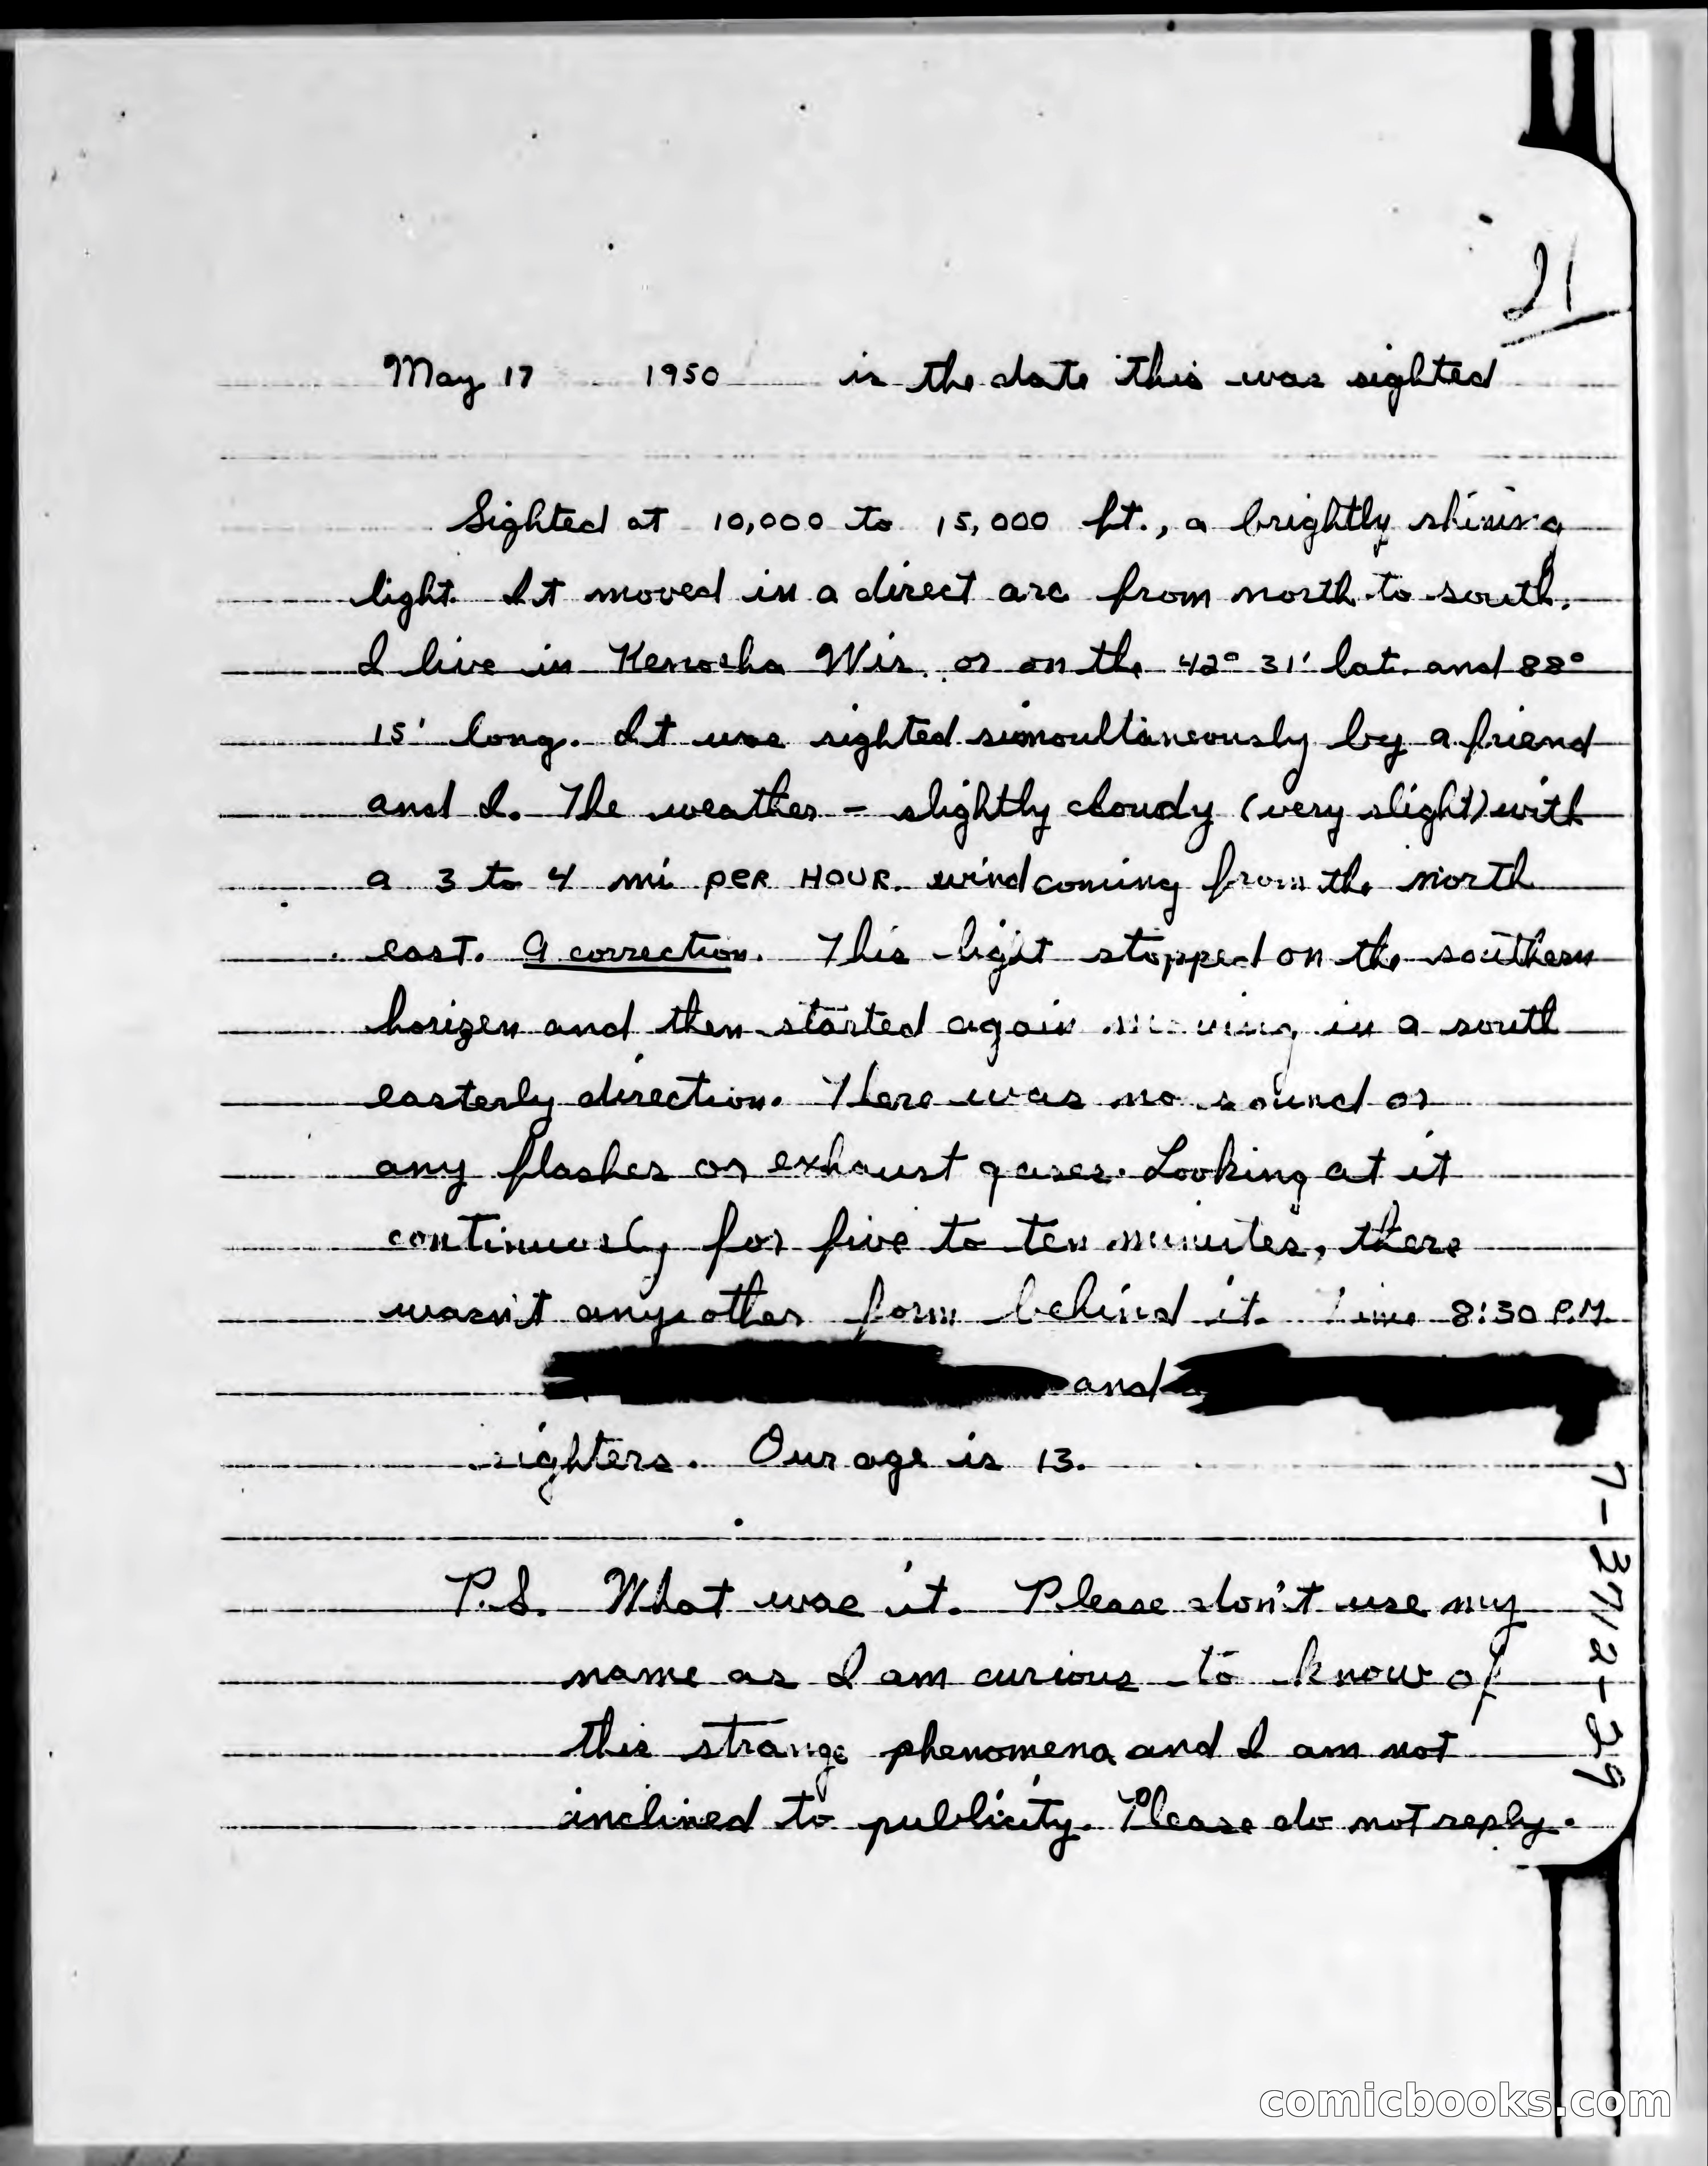 21
May 17 1950 is the date this was sighted
Sighted at 10,000 to 15,000 ft., a brightly shining
light. It moved in a direct arc from north to south.
I live in Kenosha Wis. or on the 42° 31' lat. and 88°
15' long. It was sighted simoultaneously by a friend
and I. The weather - slightly cloudy (very slight) with
a 3 to 4 mi PER HOUR. wind coming from the north
east. A correction. This light stopped on the southern
horizen and then started again moving in a south
easterly direction. There was no sound or
any flashes or exhaust gases. Looking at it
continuously for five to ten minutes, there
wasn't any other form behind it. Time 8:30 P.M.
and
sighters. Our age is 13.
P.S. What was it. Please don't use my
name as I am curious to know of
this strange phenomena and I am not
inclined to publicity. Please do not reply.
7-3712-29
comicbooks.com